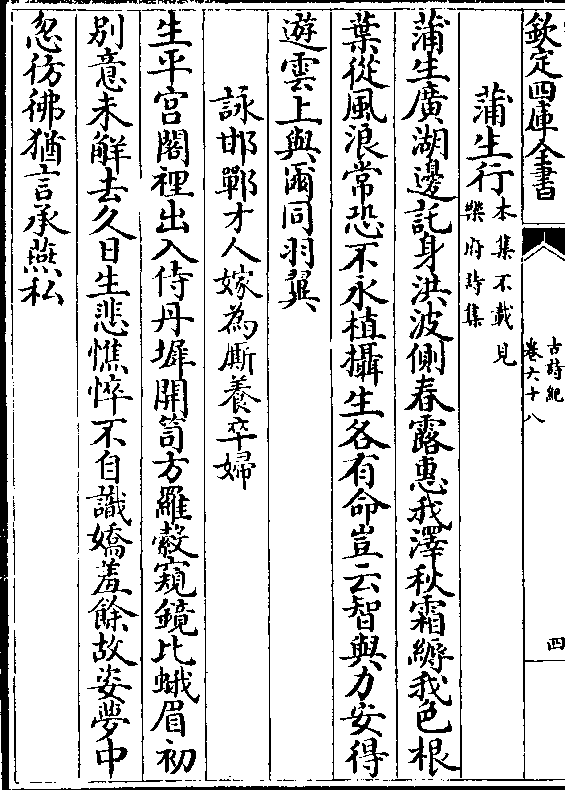 欽定四庫全書
古詩紀
卷六十八
四
蒲生行本集不載見
樂府詩集
蒲生廣湖邊託身洪波側春露惠我澤秋霜縟我色根
葉從風浪常恐不永植攝生各有命豈云智與力安得
遊雲上與爾同羽翼
詠邯鄲才人嫁為厮養卒婦
生平宮閣裡出入侍丹墀開笥方羅縠窺鏡比蛾眉初
别意未解去久日生悲憔悴不自識嬌羞餘故姿夢中
忽彷彿猶言承燕私